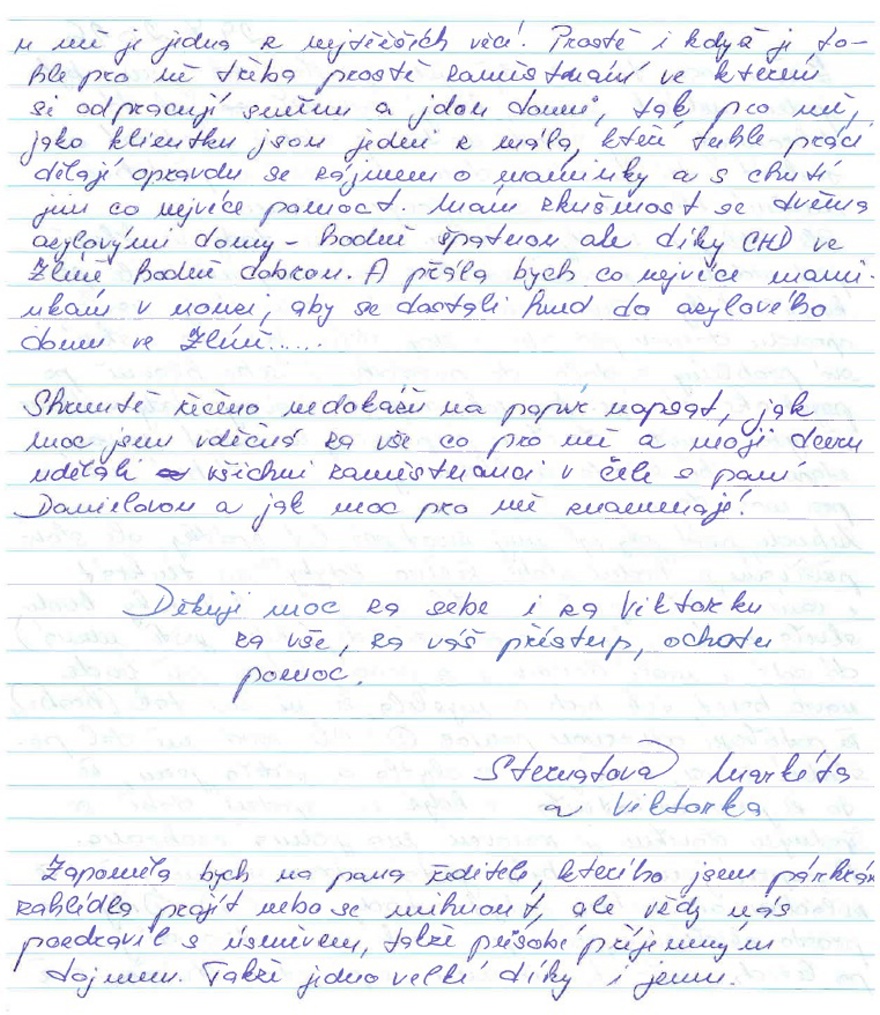 u mě je jedna z nejtěžších věcí! Prostě i když je to-
hle pro ně třeba prostě zaměstnání ve kterém
si odpracují směnu a jdou domů, tak pro mě,
jako klientku jsou jedni z mála, kteří tuhle práci
dělají opravdu se zájmem o maminky a s chutí
jim co nejvíce pomoct. Mám zkušenost se dvěma
azylovými domy - hodně špatnou ale díky CHD ve
Zlíně hodně dobrou. A přála bych co nejvíce mami-
nkám v nouzi, aby se dostali hned do azylového
domu ve Zlíně.....
Shrnutě řečeno nedokážu na papír napsat, jak
moc jsem vděčná za vše co pro mě a moji dceru
udělali všichni zaměstnanci v čele s paní
Danielovou a jak moc pro mě znamenají!
Děkuji moc za sebe i za Viktorku
za vše, za váš přístup, ochotu
pomoc.
Markéta
a Viktorka
Zapoměla bych na pana ředitele, kterého jsem párkrát
zahlídla projít nebo se mihnout, ale vždy nás
pozdravil s úsměvem, takže působí příjemným
dojmem. Takže jedno velké díky i jemu.